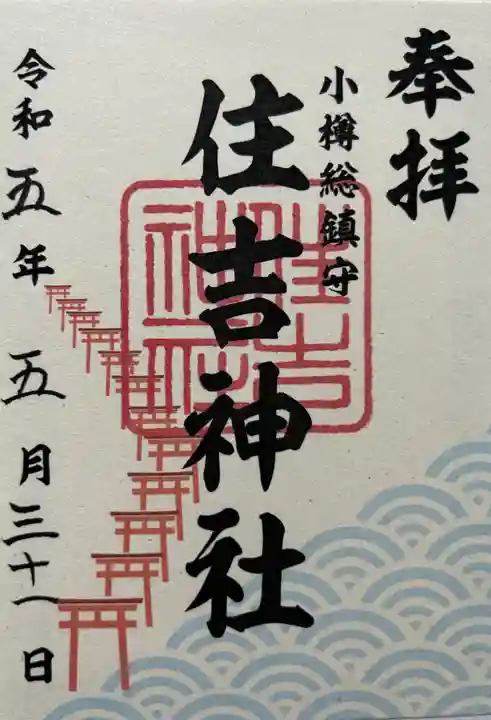 奉拝
小樽総鎮守
住吉神社
令和五年五月三十一日
住吉神社